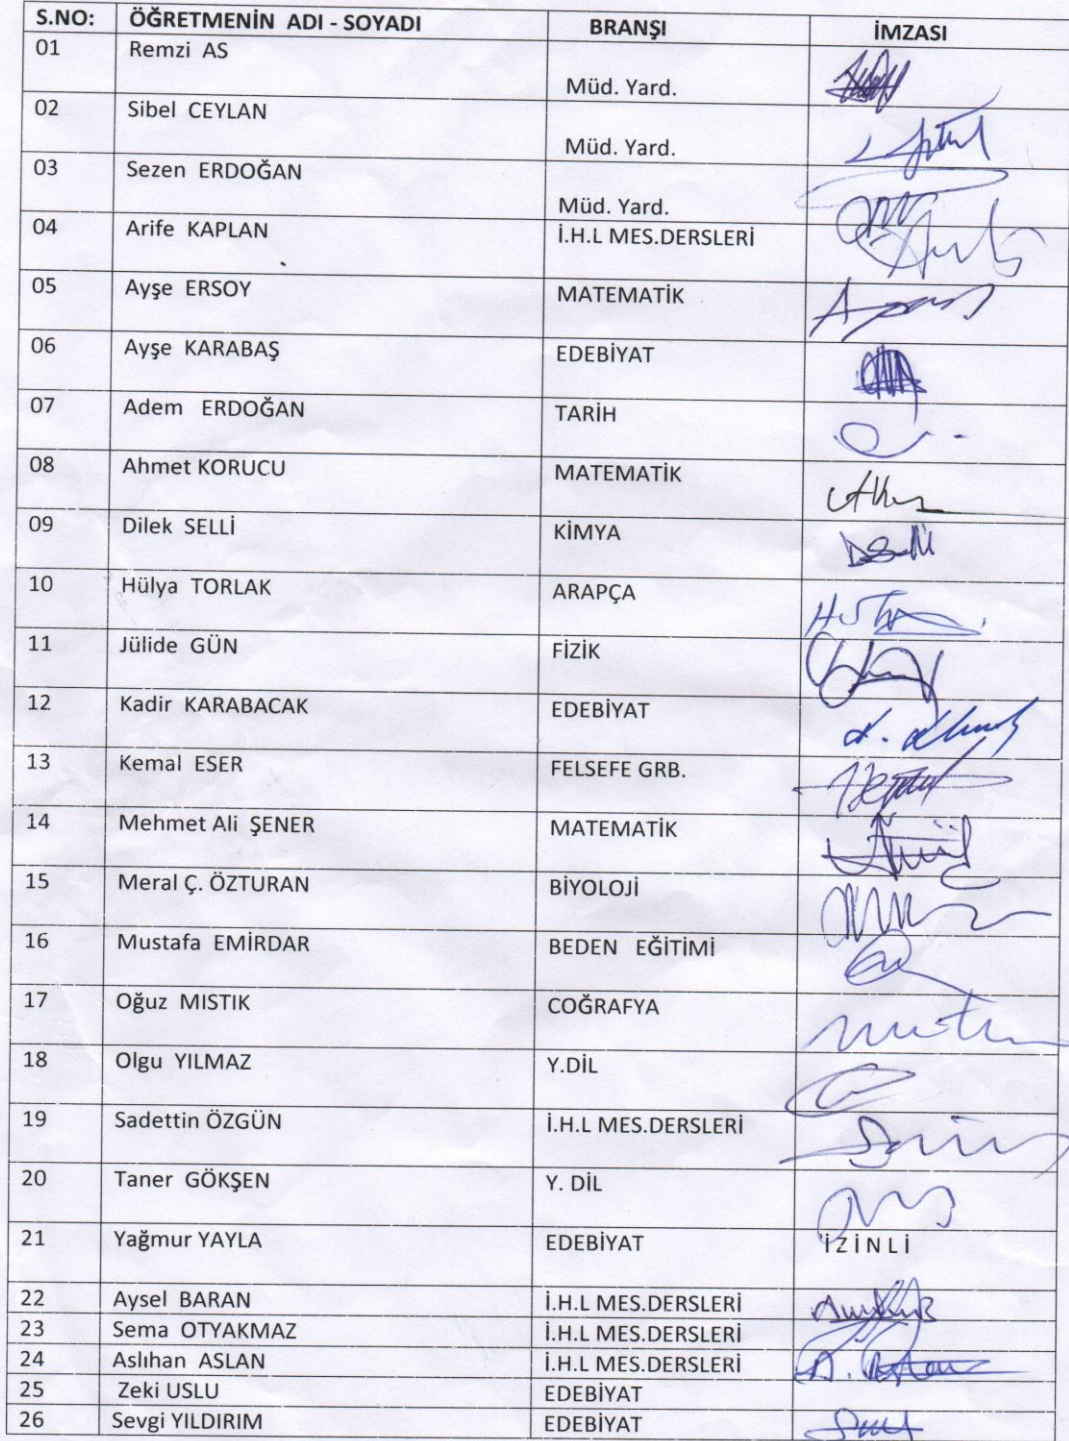 S.NO: ÖĞRETMENİN ADI - SOYADI BRANŞI İMZASI
01 Remzi AS Müd. Yard.
02 Sibel CEYLAN Müd. Yard.
03 Sezen ERDOĞAN Müd. Yard.
04 Arife KAPLAN İ.H.L MES.DERSLERİ
05 Ayşe ERSOY MATEMATİK
06 Ayşe KARABAŞ EDEBİYAT
07 Adem ERDOĞAN TARİH
08 Ahmet KORUCU MATEMATİK
09 Dilek SELLİ KİMYA
10 Hülya TORLAK ARAPÇA
11 Jülide GÜN FİZİK
12 Kadir KARABACAK EDEBİYAT
13 Kemal ESER FELSEFE GRB.
14 Mehmet Ali ŞENER MATEMATİK
15 Meral Ç. ÖZTURAN BİYOLOJİ
16 Mustafa EMİRDAR BEDEN EĞİTİMİ
17 Oğuz MISTIK COĞRAFYA
18 Olgu YILMAZ Y.DİL
19 Sadettin ÖZGÜN İ.H.L MES.DERSLERİ
20 Taner GÖKŞEN Y. DİL
21 Yağmur YAYLA EDEBİYAT İZİNLİ
22 Aysel BARAN İ.H.L MES.DERSLERİ
23 Sema OTYAKMAZ İ.H.L MES.DERSLERİ
24 Aslıhan ASLAN İ.H.L MES.DERSLERİ
25 Zeki USLU EDEBİYAT
26 Sevgi YILDIRIM EDEBİYAT